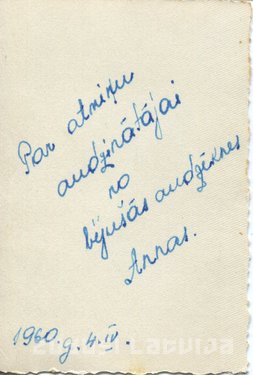 Par atmiņu
audzinātājai
no
bijušās audzēknes
Annas.
1960. g. 4. IV.